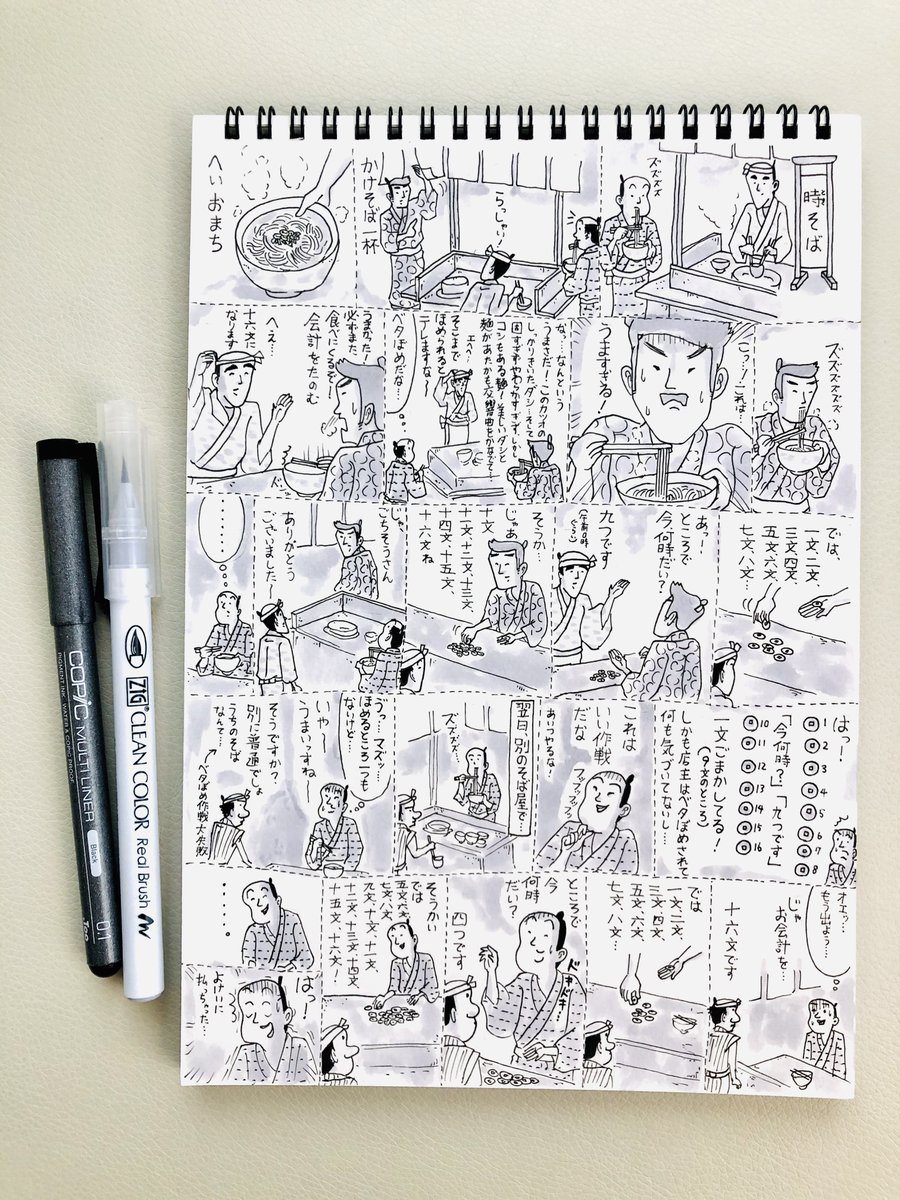 時そば
ズズズズ
らっしゃい!
かけそば一杯
へいおまち
ズズズズズズ
こっ…!これは…
うますぎる!
なっ…なんという
うまさだ!このカツオの
しっかりきいたダシ…そして
固すぎずやわらかすぎずしかし
コシもある麺!美しいダシと
麺があたかも交響曲をかなでて…
エヘヘ…
そこまで
ほめられると
テレますな〜
ベタぼめだな…
うまかった!
必ずまた
食べにくるぞ!
会計をたのむ
へえ…
十六文に
なります
では、
一文、二文、
三文、四文、
五文、六文、
七文、八文…
あっ!
ところで
今何時だい?
九つです
そうか…
じゃあ
十文、
十一文、十二文、十三文、
十四文、十五文、
十六文ね
じゃ、
ごちそうさん
ありがとう
ございました〜
……
はっ!
1
2
3
4
5
6
7
8
「今何時?」「九つです」
10
11
12
13
14
15
16
一文ごまかしてる!
(9文のところ)
しかも店主はベタぼめされて
何も気づいてないし…
これは
いい作戦
だな
あいつやるな!
フフフフッ
翌日、別のそば屋で…
ズズズ…
うっ…マズッ…
ほめるところ一つも
ないけど…
いや〜
うまいっすね
そうですか?
別に普通でしょ
うちのそば
なんて…
ベタぼめ作戦大失敗
オエッ…
もう出よう…
じゃ
お会計を…
十六文です
では
一文、二文、
三文、四文、
五文、六文、
七文、八文…
ところで
今
何時
だい?
ドキドキ…
四つです
そうかい
では
五文、六文、
七文、八文、
九文、十文、十一文、
十二文、十三文、十四文、
十五文、十六文!
……
はっ!
よけいに
払っちゃった…
COPIC MULTI LINER
PIGMENT INK, WATER & COPIC PROOF
Black
0.1
Too
ZIG CLEAN COLOR Real Brush